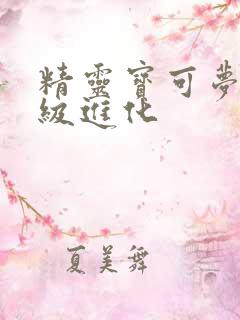 精靈寶可夢
級進化
夏美舞